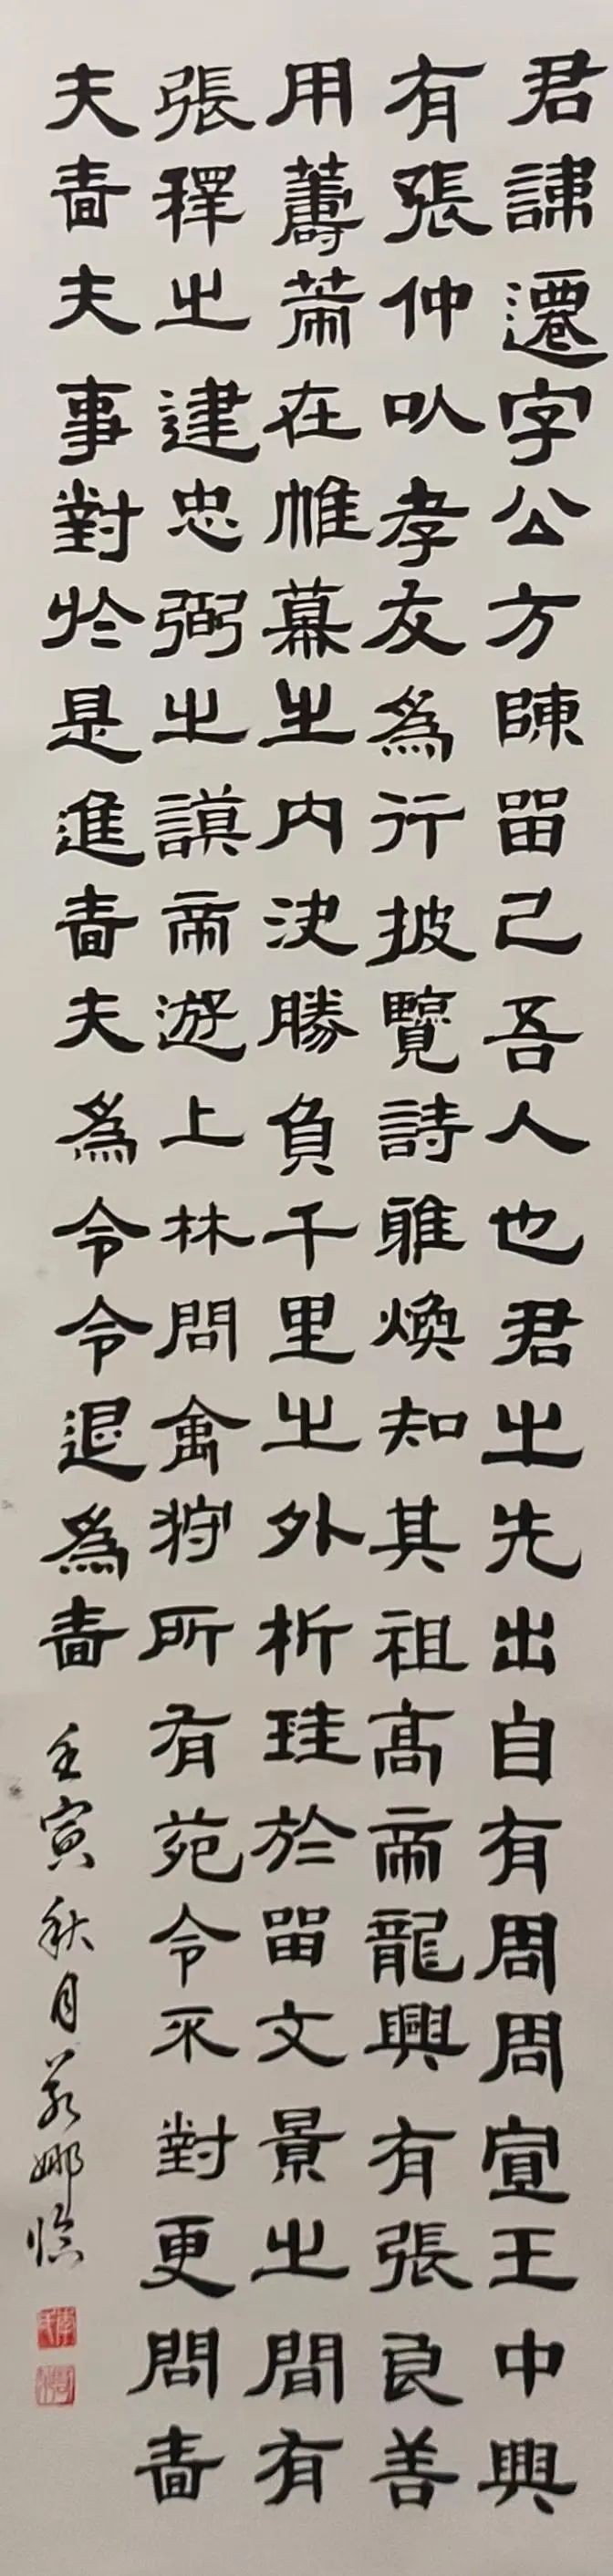 君諱遷字公方陳留己吾人也君之先出自有周周宣王中興
有張仲以孝友為行披覽詩雅煥知其祖高帝龍興有張良善
用籌策在帷幕之內決勝負千里之外析珪於留文景之間有
張釋之建忠弼之謨帝遊上林問禽狩所有苑令不對更問嗇
夫嗇夫事對於是進嗇夫為令令退為嗇
壬寅秋月若娜臨